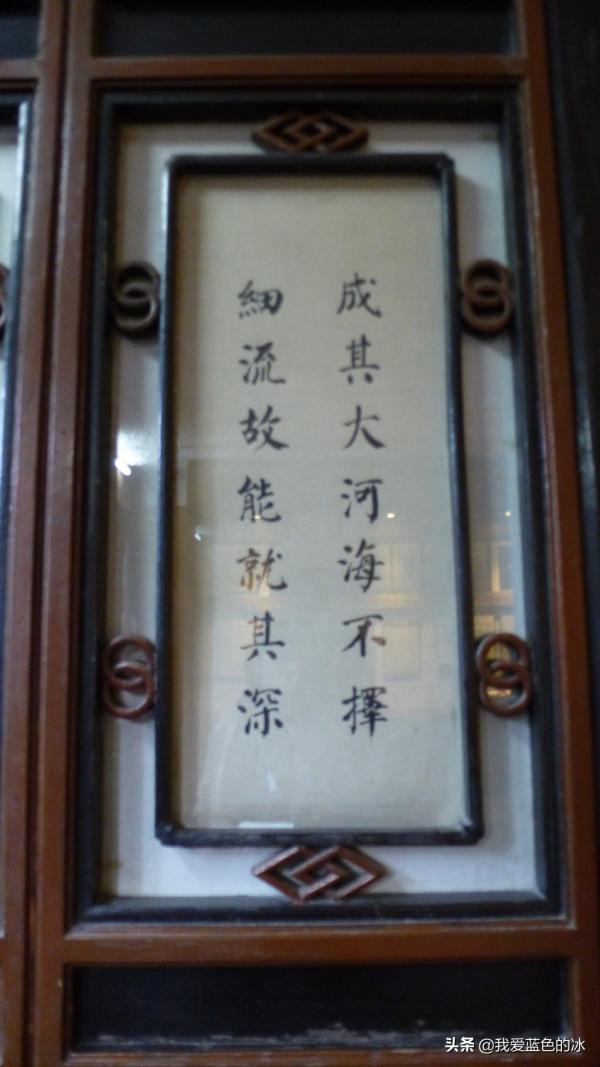 成其大河海不擇
細流故能就其深
头条 @我爱蓝色的冰